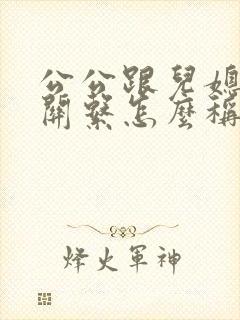 公公跟兒媳
關繫怎麼稱
烽火軍神